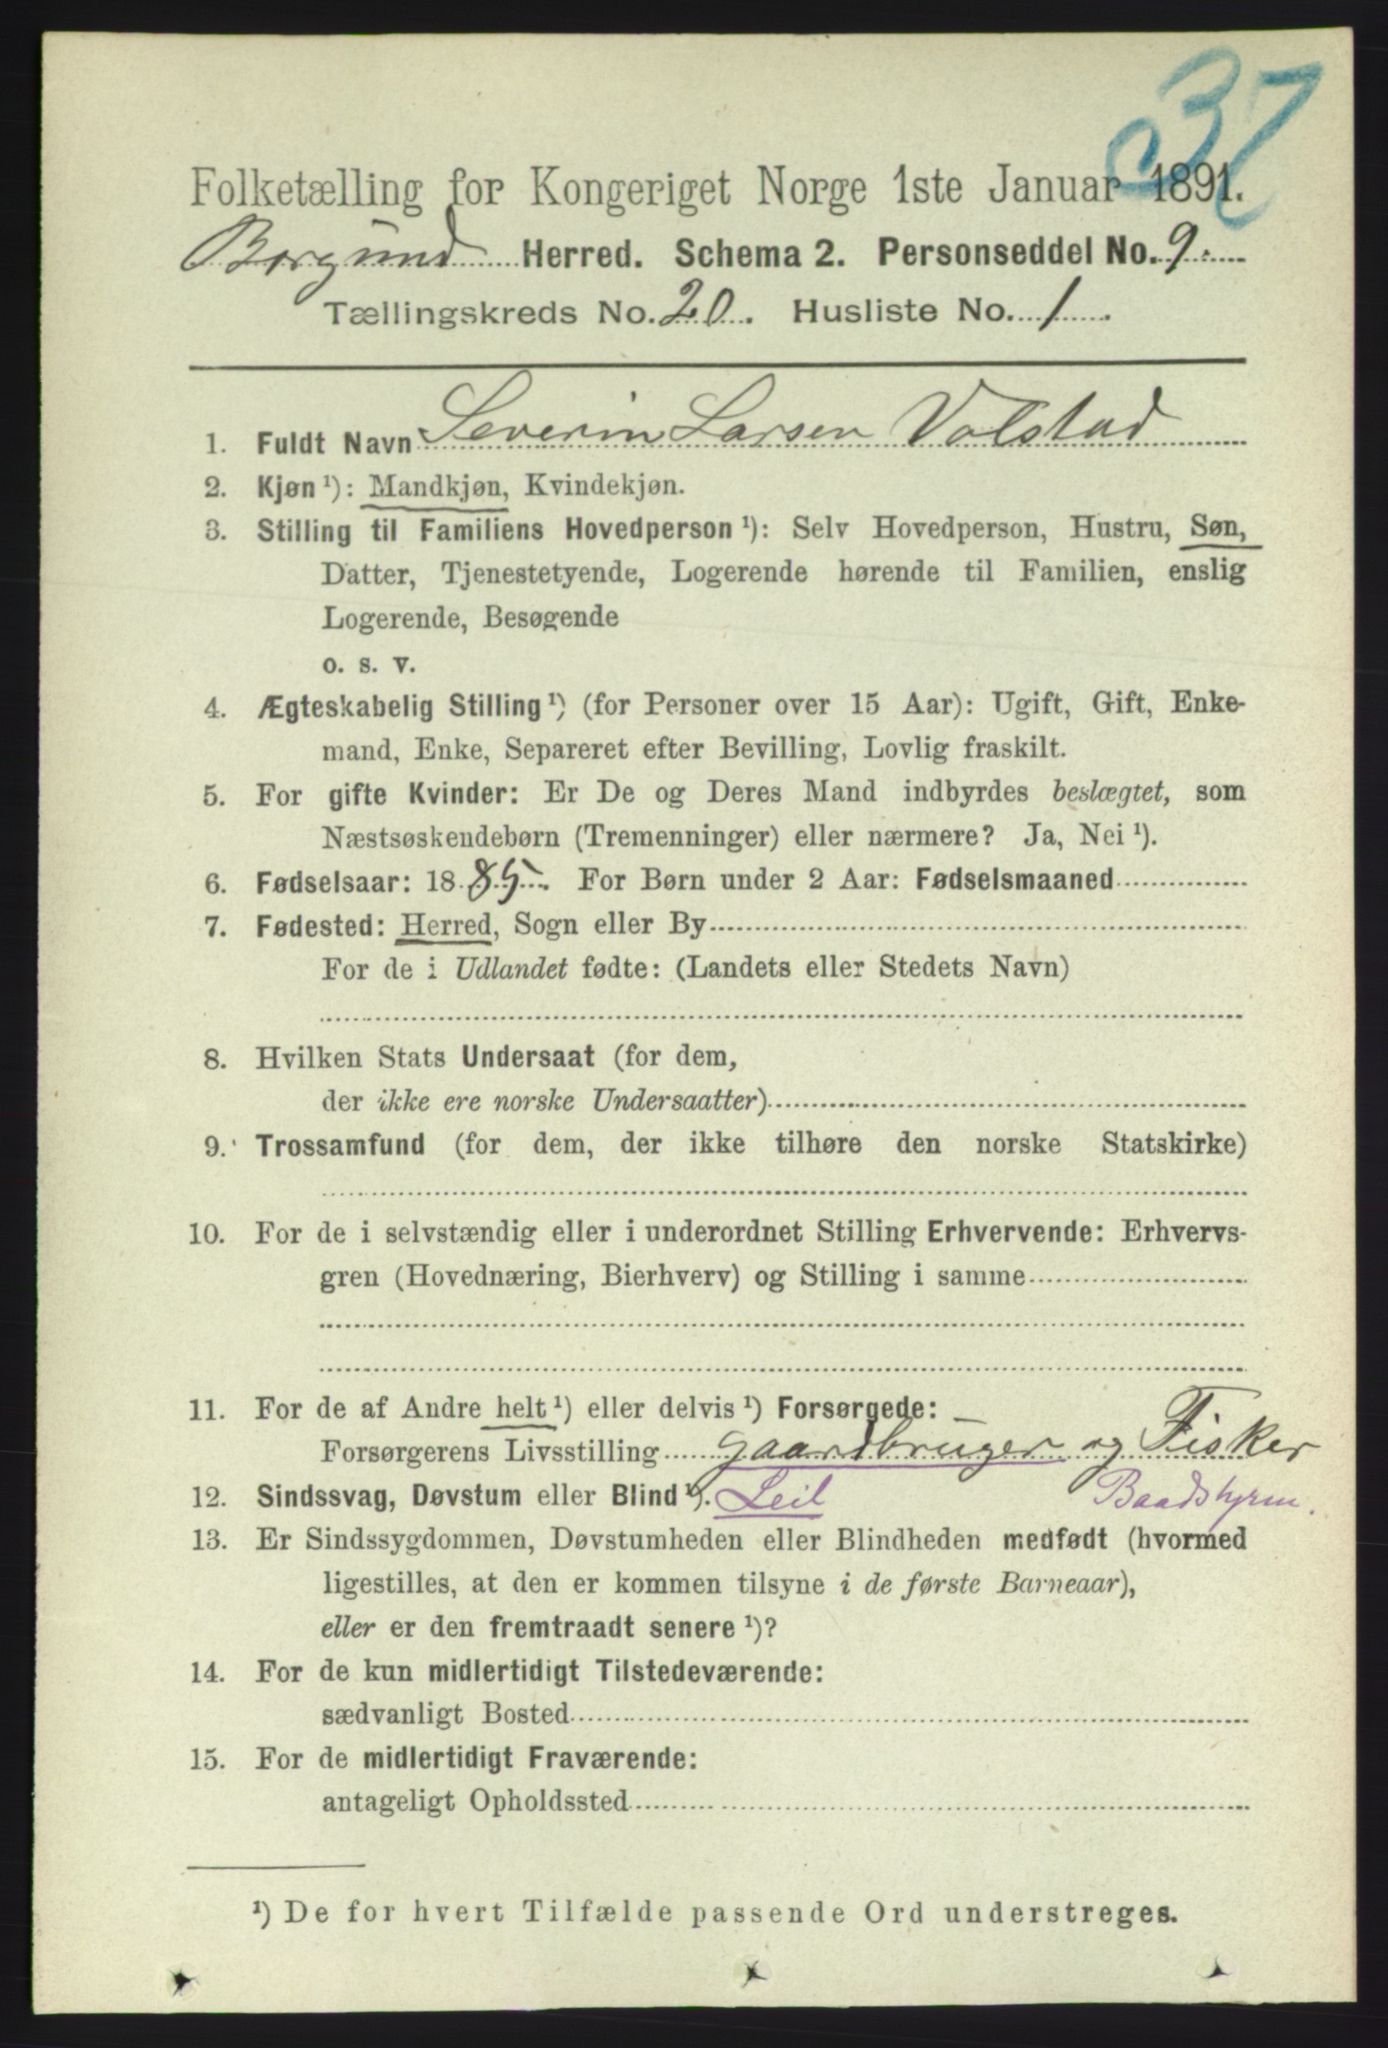 37
Folketælling for Kongeriget Norge 1ste Januar 1891.
Borgund Herred. Schema 2. Personseddel No. 9.
Tællingskreds No. 20. Husliste No. 1.
1. Fuldt Navn Severin Larsen Valstad
2. Kjøn ¹): Mandkjøn, Kvindekjøn.
3. Stilling til Familiens Hovedperson ¹): Selv Hovedperson, Hustru, Søn,
Datter, Tjenestetyende, Logerende hørende til Familien, enslig
Logerende, Besøgende
o. s. v.
4. Ægteskabelig Stilling ¹) (for Personer over 15 Aar): Ugift, Gift, Enke-
mand, Enke, Separeret efter Bevilling, Lovlig fraskilt.
5. For gifte Kvinder: Er De og Deres Mand indbyrdes beslægtet, som
Næstsøskendebørn (Tremenninger) eller nærmere? Ja, Nei ¹).
6. Fødselsaar: 1885. For Børn under 2 Aar: Fødselsmaaned
7. Fødested: Herred, Sogn eller By
For de i Udlandet fødte: (Landets eller Stedets Navn)
8. Hvilken Stats Undersaat (for dem,
der ikke ere norske Undersaatter)
9. Trossamfund (for dem, der ikke tilhøre den norske Statskirke)
10. For de i selvstændig eller i underordnet Stilling Erhvervende: Erhvervs-
gren (Hovednæring, Bierhverv) og Stilling i samme
11. For de af Andre helt ¹) eller delvis ¹) Forsørgede:
Forsørgerens Livsstilling gaardbruger og Fisker
12. Sindssvag, Døvstum eller Blind ¹). Leil Baadstyrm.
13. Er Sindssygdommen, Døvstumheden eller Blindheden medfødt (hvormed
ligestilles, at den er kommen tilsyne i de første Barneaar),
eller er den fremtraadt senere ¹)?
14. For de kun midlertidigt Tilstedeværende:
sædvanligt Bosted
15. For de midlertidigt Fraværende:
antageligt Opholdssted
¹) De for hvert Tilfælde passende Ord understreges.